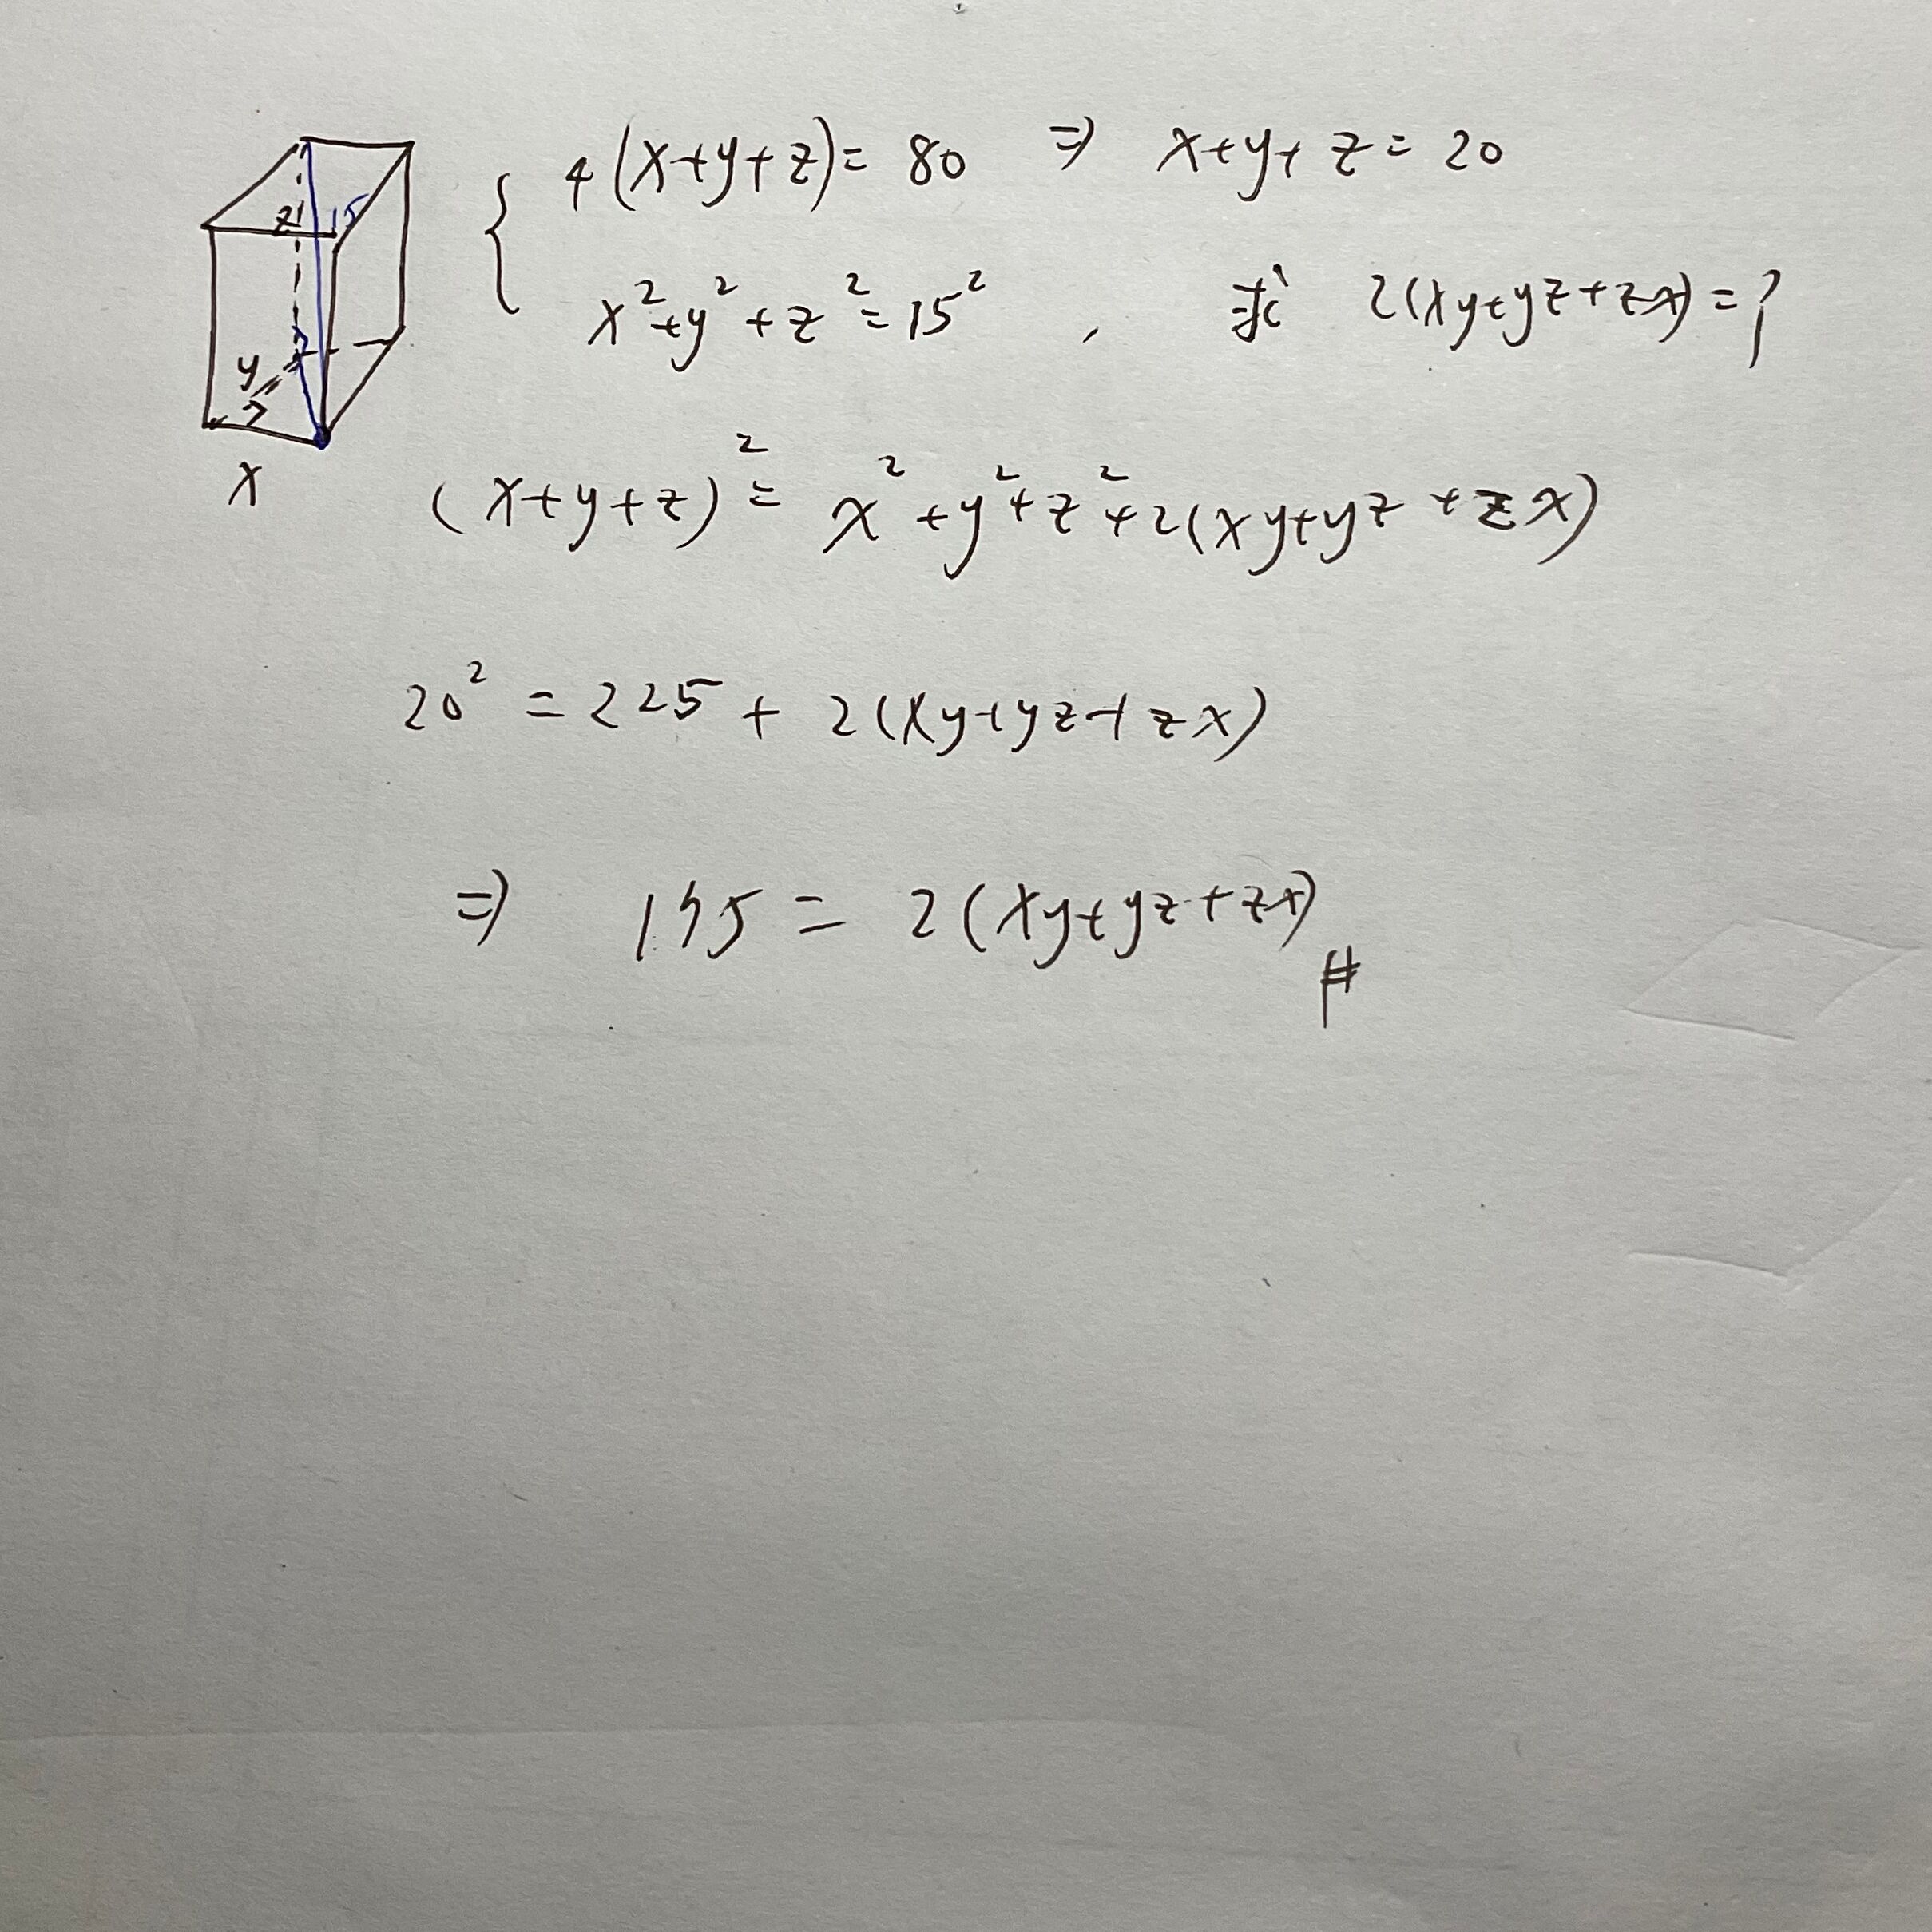 4(x+y+z)=80 ⇒ x+y+z=20
x²+y²+z²=15² , 求 2(xy+yz+zx)=?
z 15
y
x
(x+y+z)²=x²+y²+z²+2(xy+yz+zx)
20²=225+2(xy+yz+zx)
⇒ 175=2(xy+yz+zx)#